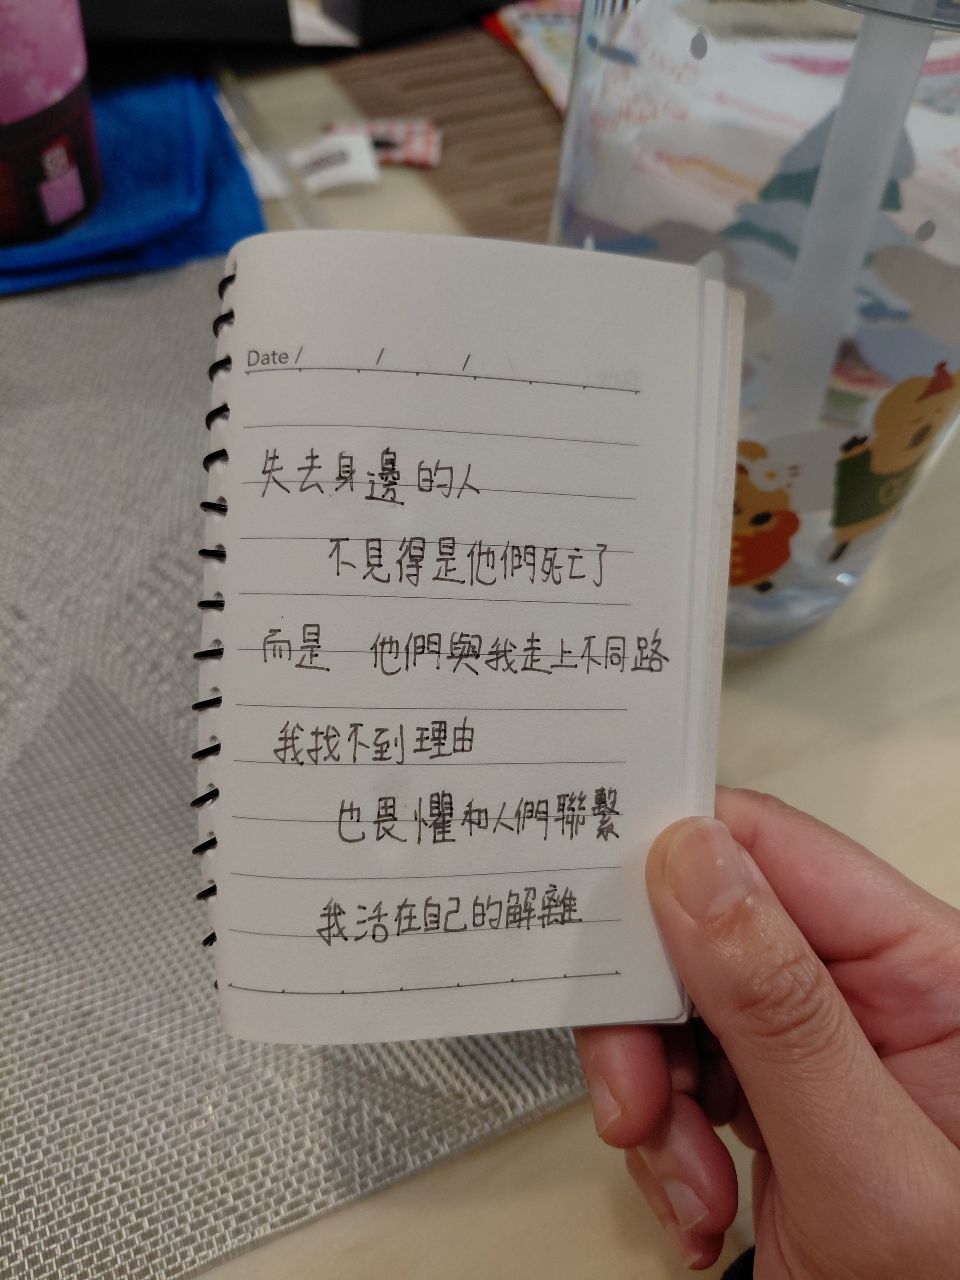 Date / / /
失去身邊的人
不見得是他們死亡了
而是 他們與我走上不同路
我找不到理由
也畏懼和人們聯繫
我活在自己的解離